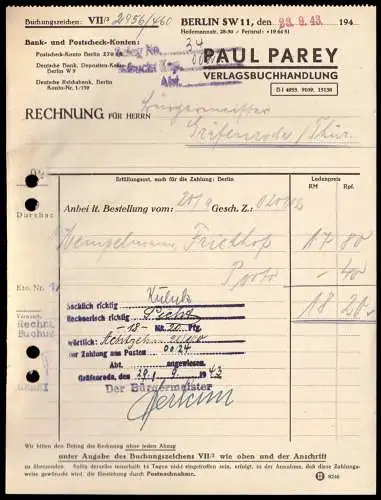 Buchungszeichen: VII/3 2956/460
BERLIN SW 11, den 23. 9. 43 194
Hedemannstr. 28-30 / Fernruf: 19 64 51
Bank- und Postscheck-Konten:
34
Postscheck-Konto Berlin
Deutsche Bank, Depositen-Kasse
Berlin W 9
Deutsche Reichsbank, Berlin
Konto-Nr. 1/159
Abt.
PAUL PAREY
VERLAGSBUCHHANDLUNG
RECHNUNG FÜR HERRN Bürgermeister
Gräfenroda / Thür.
Erfüllungsort, auch für die Zahlung: Berlin
Ladenpreis
RM Rpf.
Durchsc
Anbei lt. Bestellung vom: 20/9 Gesch. Z.:
Hempelmann, Friedhof 17 80
Porto - 40
Kto. Nr.
18 20
Sachlich richtig
Rechnerisch richtig
-18- Mk. 20 Pfg
wörtlich: Achtzehn 20/100
zur Zahlung aus Posten 00.24
Abt. angewiesen.
Gräfenroda, den 29. 9. 1943
Der Bürgermeister
Rechn.
Buchun
Wir bitten den Betrag der Rechnung ohne jeden Abzug
unter Angabe des Buchungszeichens VII/3 wie oben und der Anschrift
zu übersenden. Sollte derselbe innerhalb 14 Tagen nicht eingetroffen sein, erfolgt, in der Annahme, daß diese Zahlungs-
weise gewünscht wird, die Einziehung durch Postnachnahme.
9246